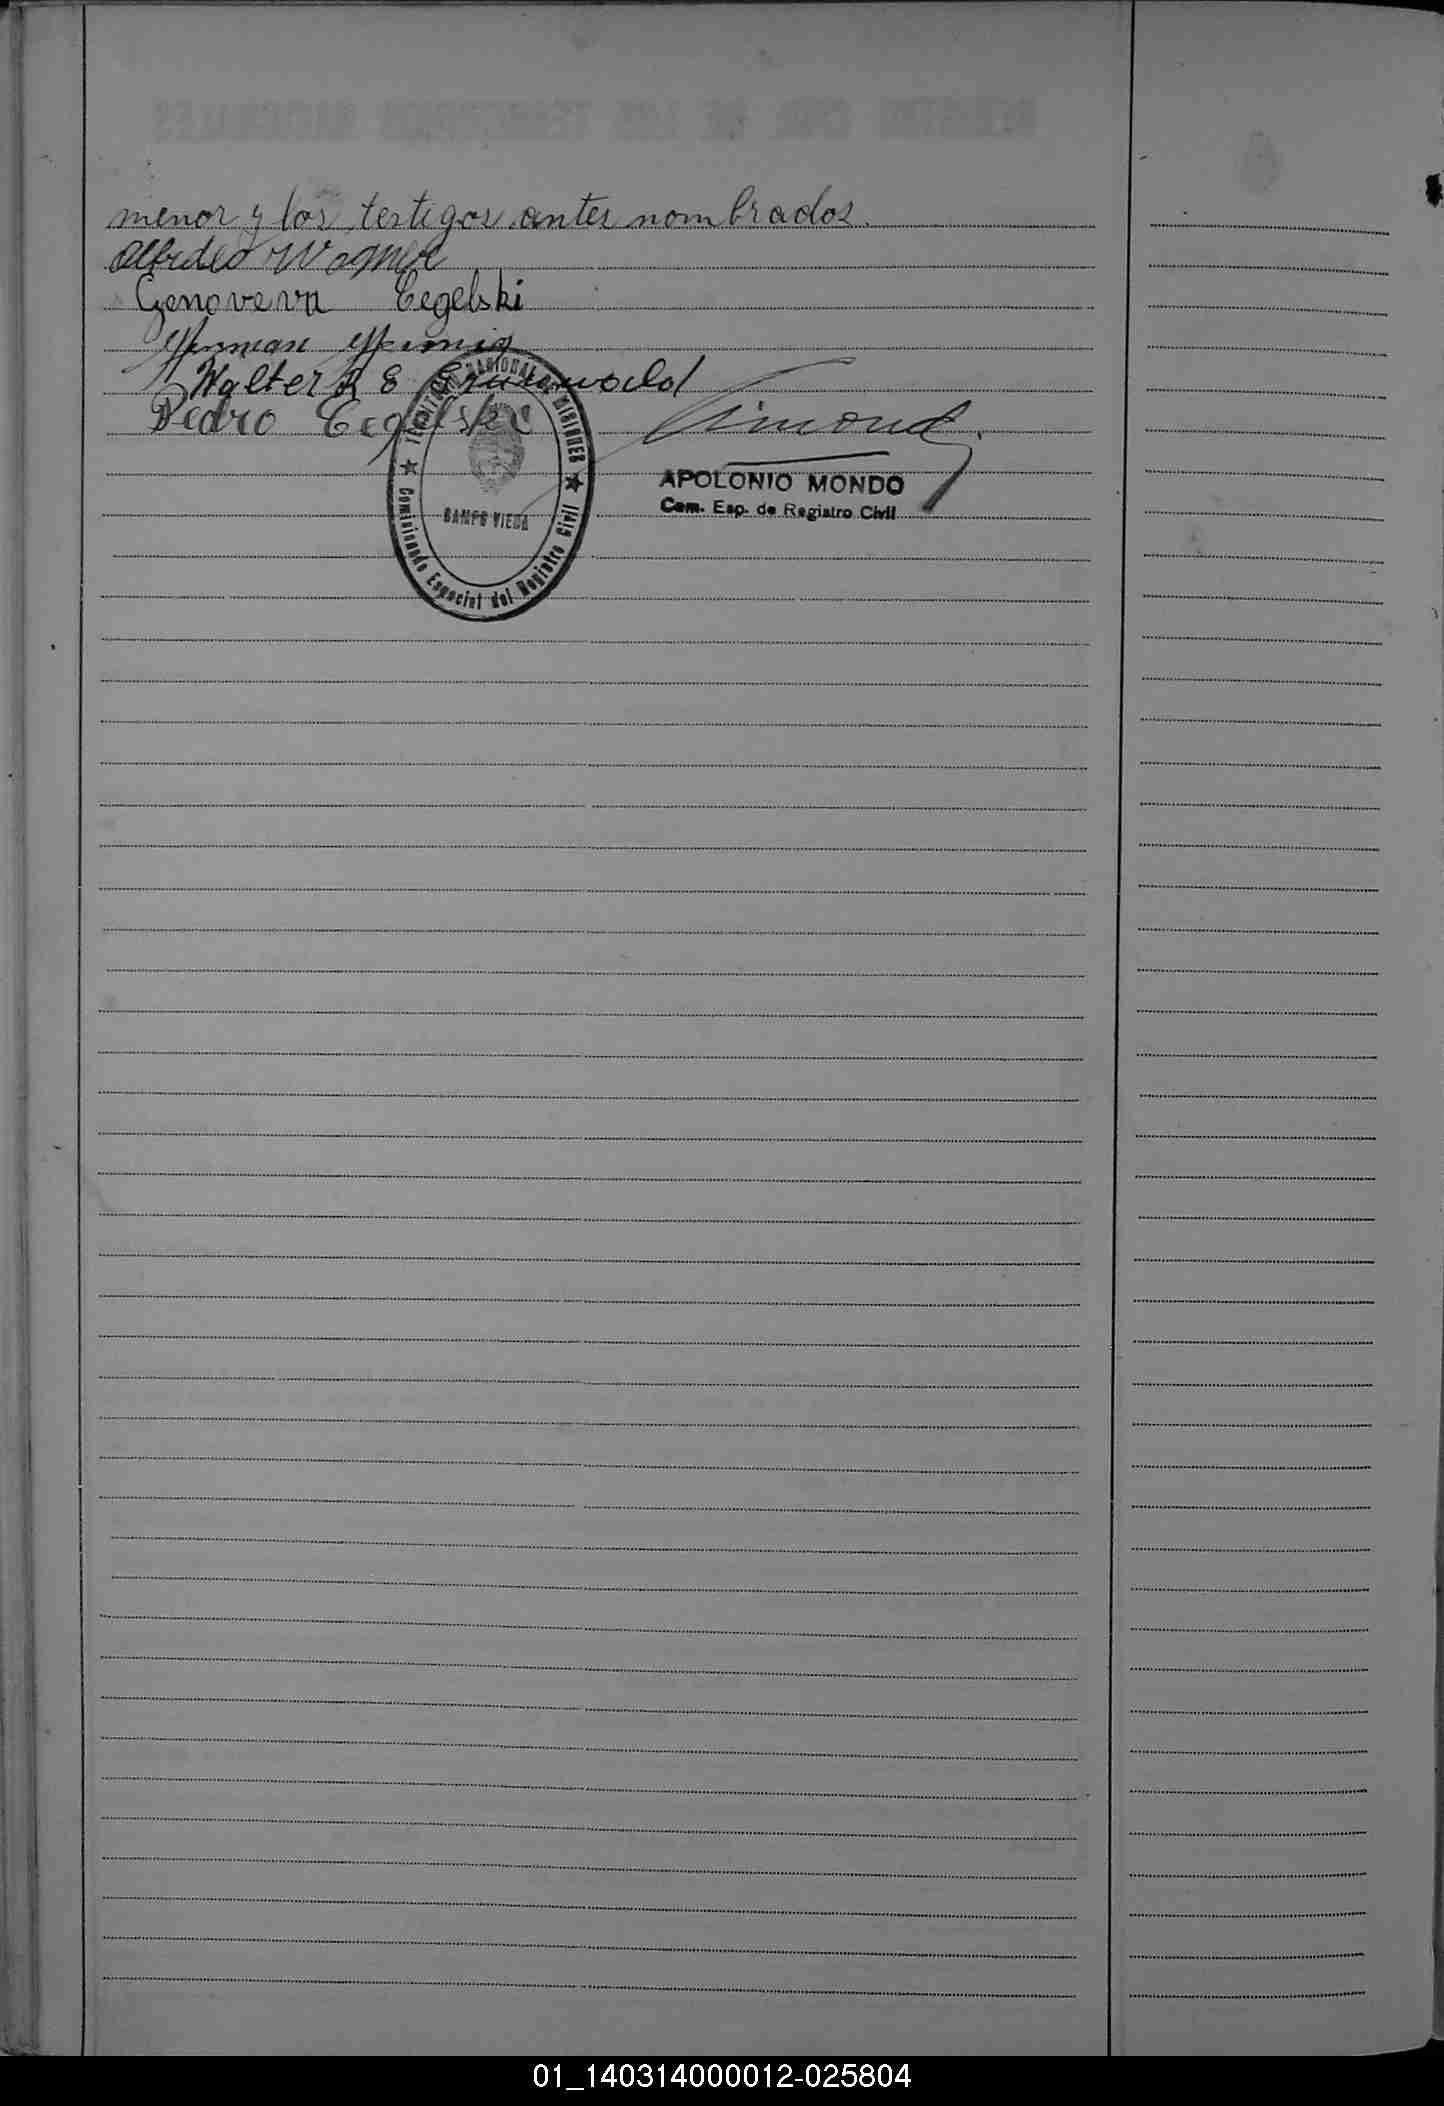 menor y los testigos antes nombrados.
Alfredo Wagner
Genoveva Cegelski
Walter R E Grunwald
Pedro Cegelski
TERRITORIO NACIONAL DE MISIONES
CAMPO VIERA
Comisionado Especial del Registro Civil
APOLONIO MONDO
Com. Esp. de Registro Civil
01_140314000012-025804